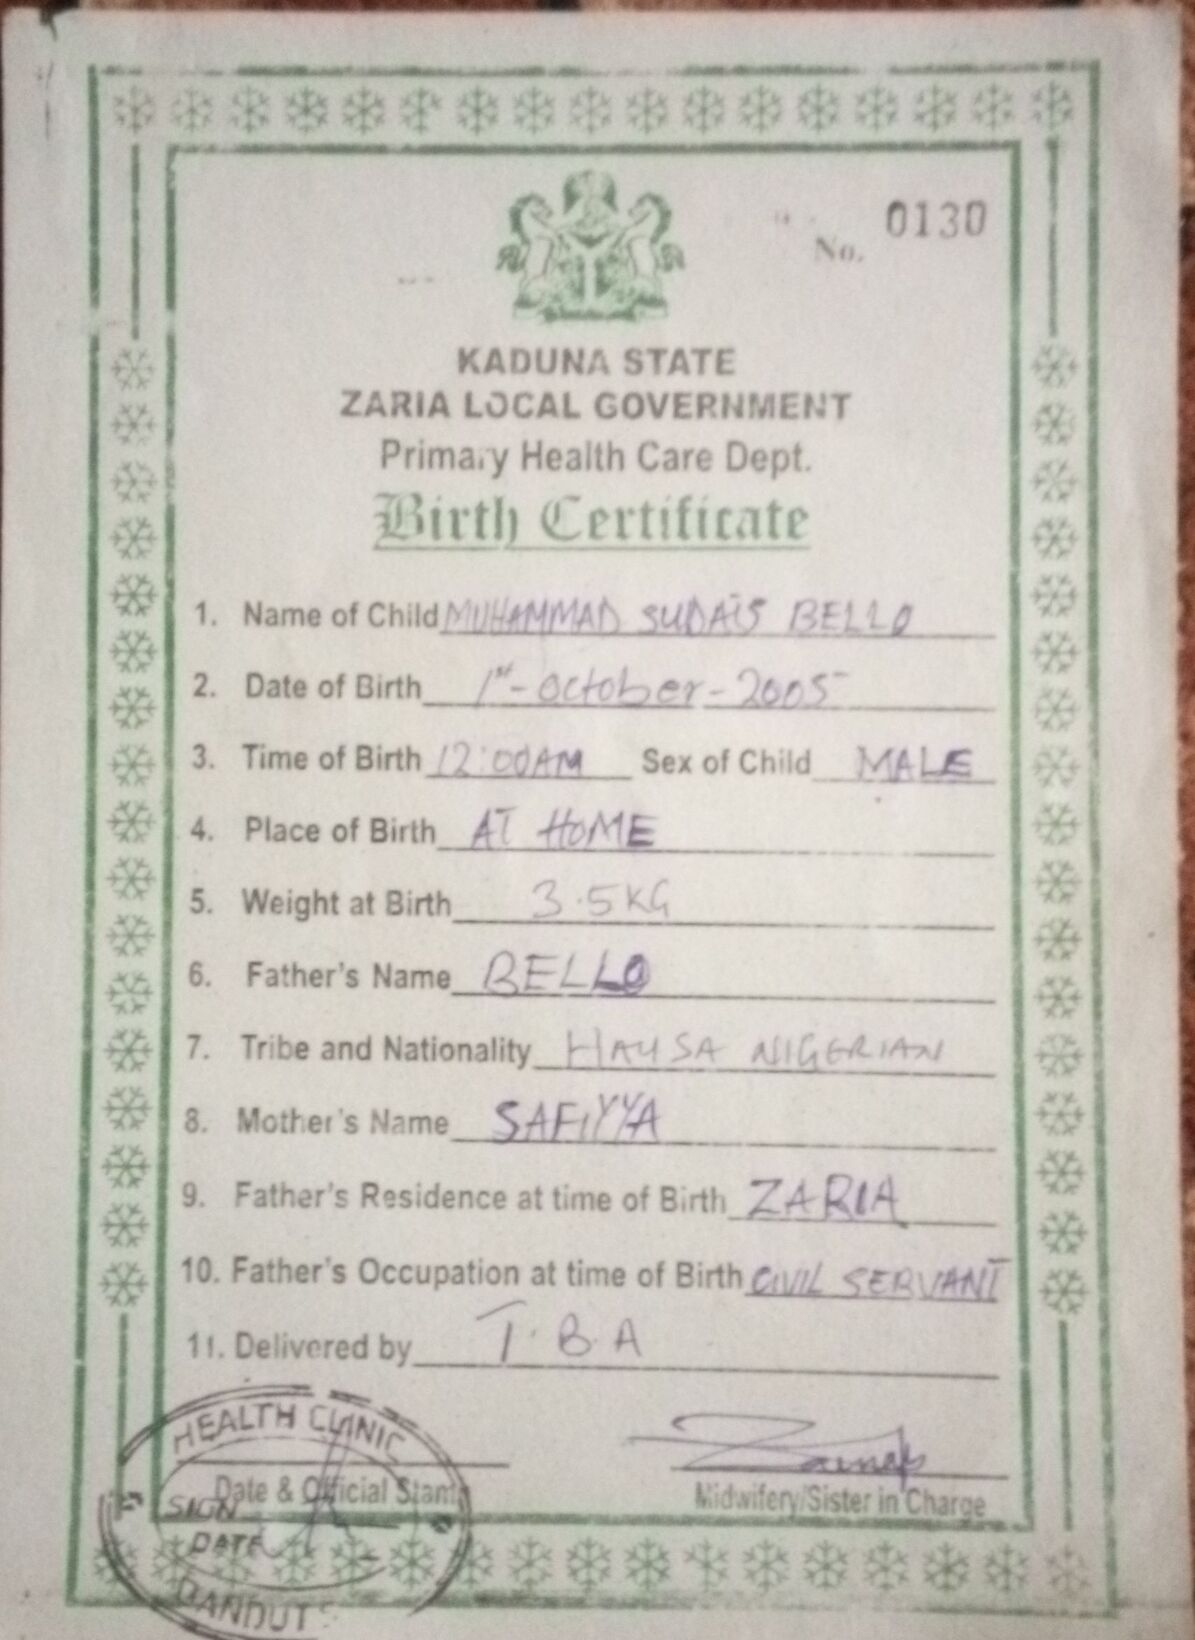 0130
No.
KADUNA STATE
ZARIA LOCAL GOVERNMENT
Primary Health Care Dept.
Birth Certificate
1. Name of Child MUHAMMAD SUDAIS BELLO
2. Date of Birth 1st - October - 2005
3. Time of Birth 12:00AM Sex of Child MALE
4. Place of Birth AT HOME
5. Weight at Birth 3.5KG
6. Father's Name BELLO
7. Tribe and Nationality HAUSA NIGERIAN
8. Mother's Name SAFIYYA
9. Father's Residence at time of Birth ZARIA
10. Father's Occupation at time of Birth CIVIL SERVANT
11. Delivered by T.B.A
HEALTH CLINIC
Zainab
Date & Official Stamp
Midwifery/Sister in Charge
SIGN
DATE